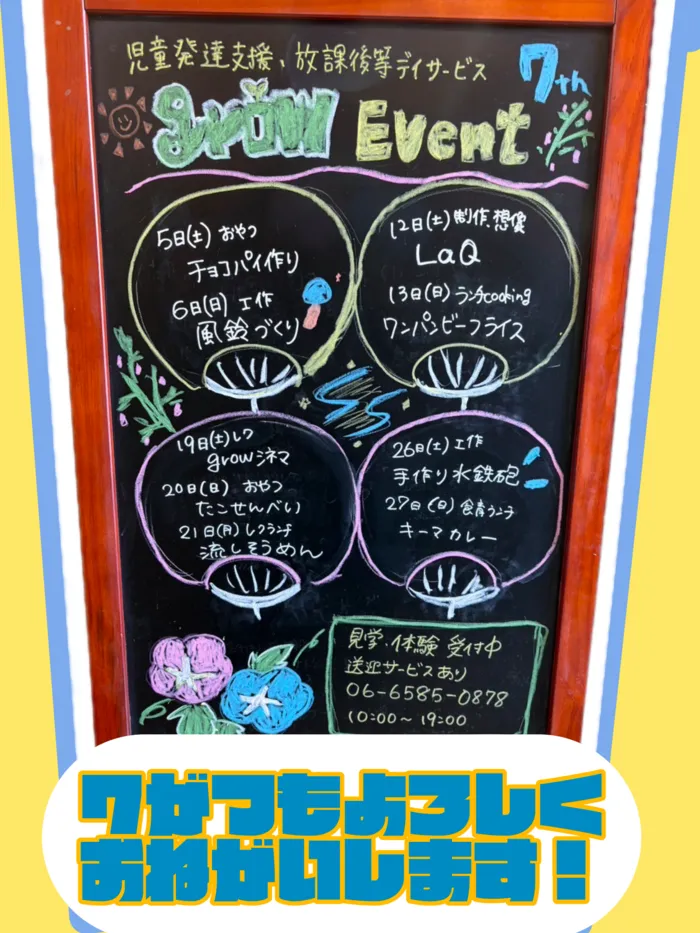 児童発達支援、放課後等デイサービス
7th
grow Event
5日(土) おやつ
チョコパイ作り
6日(日) 工作
風鈴づくり
12日(土) 制作、想像
LaQ
13日(日) ランチcooking
ワンパンビーフライス
19日(土) レク
growシネマ
20日(日) おやつ
たこせんべい
21日(月) レクランチ
流しそうめん
26日(土) 工作
手作り水鉄砲
27日(日) 食育ランチ
キーマカレー
見学、体験 受付中
送迎サービスあり
06-6585-0878
10:00〜19:00
7がつもよろしく
おねがいします!